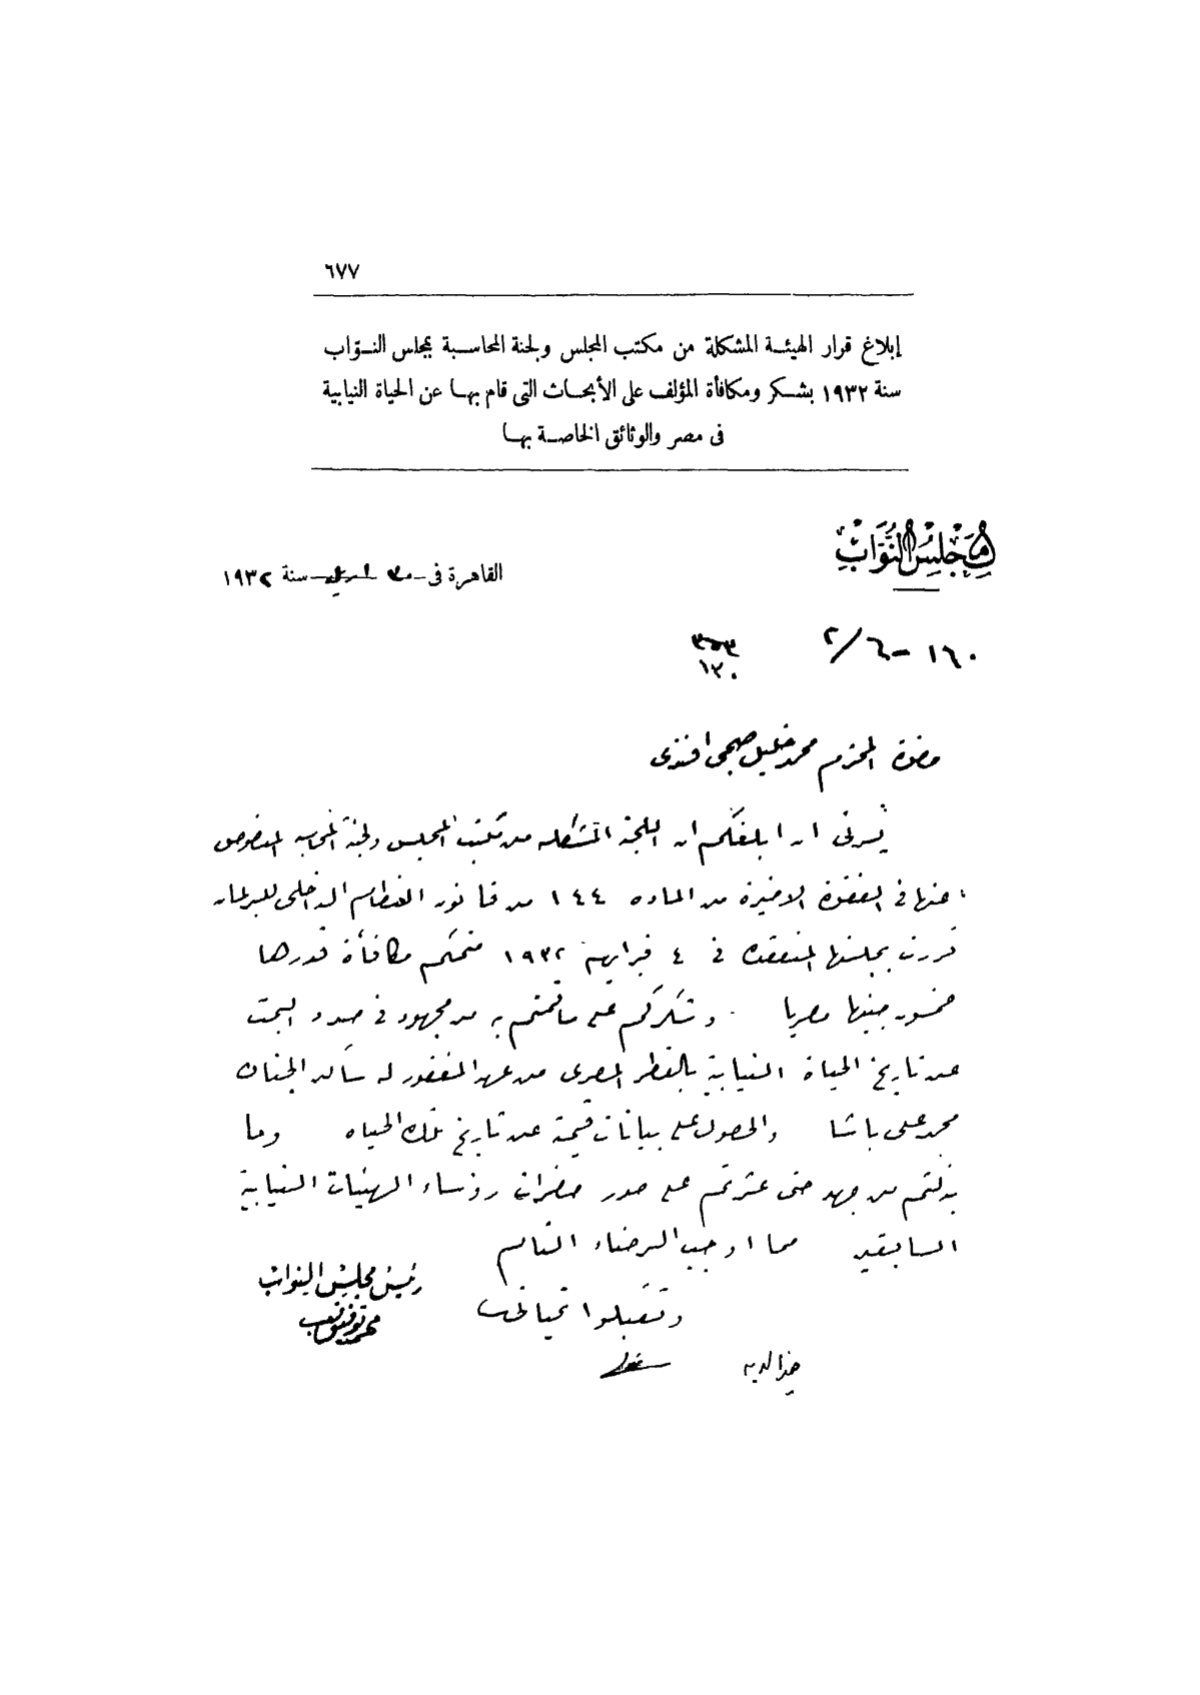 ٦٧٧
إبلاغ قرار الهيئة المشكلة من مكتب المجلس ولجنة المحاسبة بمجلس النواب
سنة ١٩٣٢ بشكر ومكافأة المؤلف على الأبحاث التى قام بها عن الحياة النيابية
فى مصر والوثائق الخاصة بها
مجلس النواب
القاهرة فى ٣٠ ابريل سنة ١٩٣٢
١٦٠ - ٢/٦
٣٥٣
١٣٠
حضرة المحترم محمد خليل صبحى افندى
يسرنى ان ابلغكم ان اللجنة المشكله من مكتب المجلس ولجنة المحاسبه المنصوص
عنها فى الفقرة الاخيرة من الماده ١٤٤ من قانون النظام الداخلى للبرلمان
قررت بجلستها المنعقده فى ٤ فبراير ١٩٣٢ منحكم مكافأة قدرها
خمسون جنيها مصريا وشكركم على ما قمتم به من مجهود فى صدد البحث
عن تاريخ الحياة النيابية بالقطر المصرى من عهد المغفور له ساكن الجنان
محمد على باشا والحصول على بيانات قيمة عن تاريخ تلك الحياه وما
بذلتم من جهد حتى عثرتم على صور حضرات رؤساء الهيئات النيابية
السابقين مما اوجب الرضاء التام
وتقبلوا تحياتى
رئيس مجلس النواب
محمد توفيق رفعت